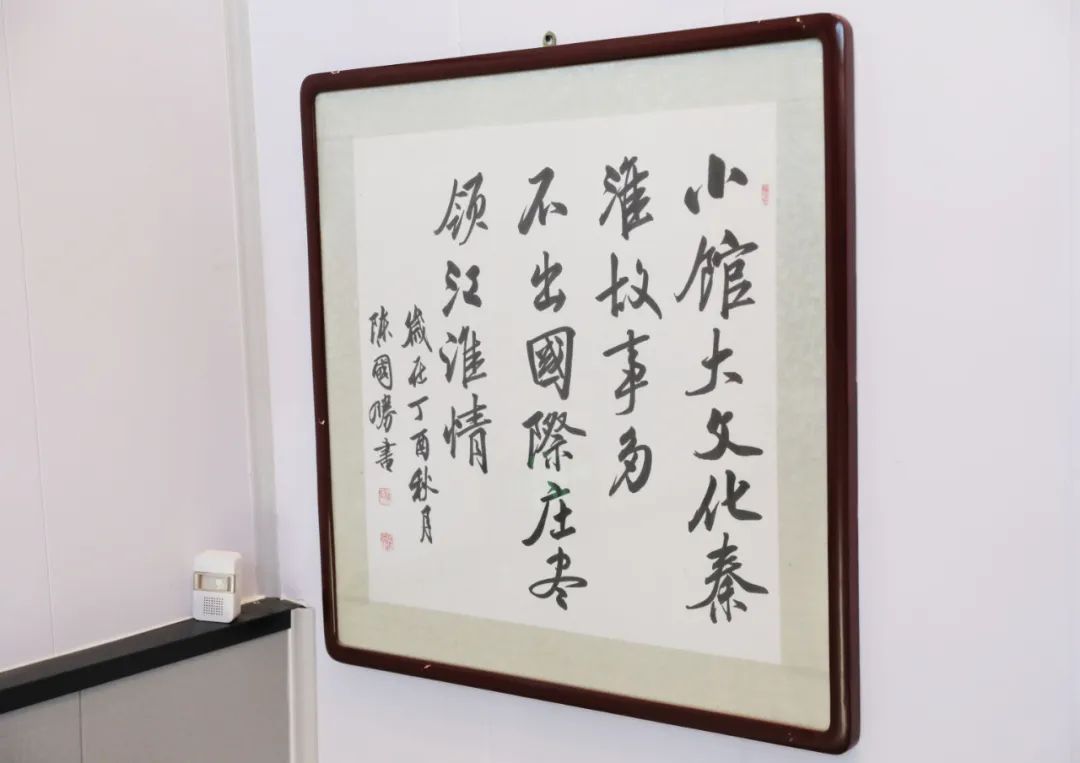 小馆大文化秦
淮故事多
不出國際庄尽
领江淮情
歲在丁酉秋月
陈國勝書